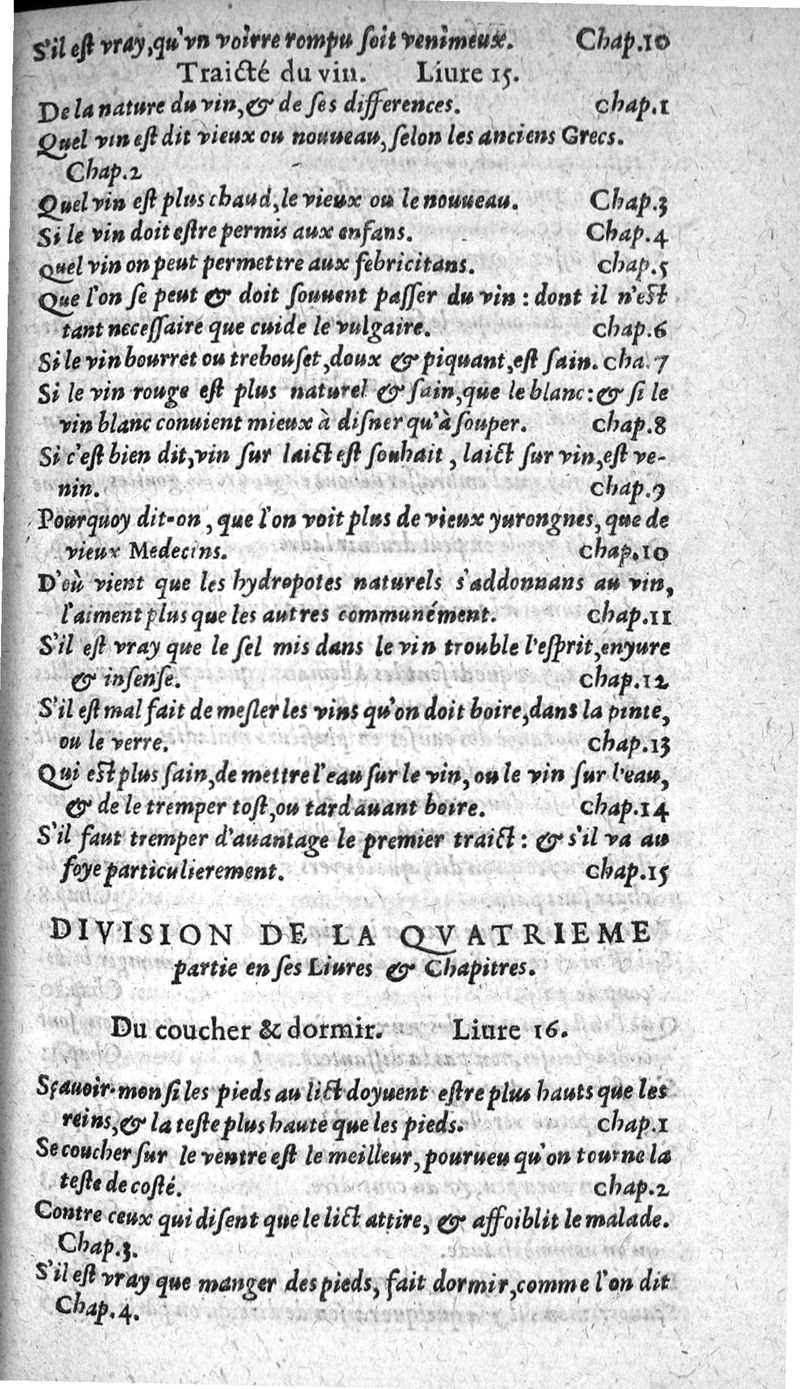 S'il est vray, qu'vn voirre rompu soit venimeux. Chap.10
Traicté du vin. Liure 15.
De la nature du vin, & de ses differences. chap.1
Quel vin est dit vieux ou nouueau, selon les anciens Grecs.
Chap.2
Quel vin est plus chaud, le vieux ou le nouueau. Chap.3
Si le vin doit estre permis aux enfans. Chap.4
Quel vin on peut permettre aux febricitans. chap.5
Que l'on se peut & doit souuent passer du vin : dont il n'est
tant necessaire que cuide le vulgaire. chap.6
Si le vin bourret ou trebouset, doux & piquant, est sain. cha.7
Si le vin rouge est plus naturel & sain, que le blanc: & si le
vin blanc conuient mieux à disner qu'à souper. chap.8
Si c'est bien dit, vin sur laict est souhait, laict sur vin, est ve-
nin. chap.9
Pourquoy dit-on, que l'on voit plus de vieux yurongnes, que de
vieux Medecins. chap.10
D'où vient que les hydropotes naturels s'addonnans au vin,
l'aiment plus que les autres communément. chap.11
S'il est vray que le sel mis dans le vin trouble l'esprit, enyure
& insense. chap.12
S'il est mal fait de mesler les vins qu'on doit boire, dans la pinte,
ou le verre. chap.13
Qui est plus sain, de mettre l'eau sur le vin, ou le vin sur l'eau,
& de le tremper tost, ou tard auant boire. chap.14
S'il faut tremper d'auantage le premier traict : & s'il va au
foye particulierement. chap.15
DIVISION DE LA QVATRIEME
partie en ses Liures & Chapitres.
Du coucher & dormir. Liure 16.
Sçauoir-mon si les pieds au lict doyuent estre plus hauts que les
reins, & la teste plus haute que les pieds. chap.1
Se coucher sur le ventre est le meilleur, pourueu qu'on tourne la
teste de costé. chap.2
Contre ceux qui disent que le lict attire, & affoiblit le malade.
Chap.3.
S'il est vray que manger des pieds, fait dormir, comme l'on dit
Chap.4.